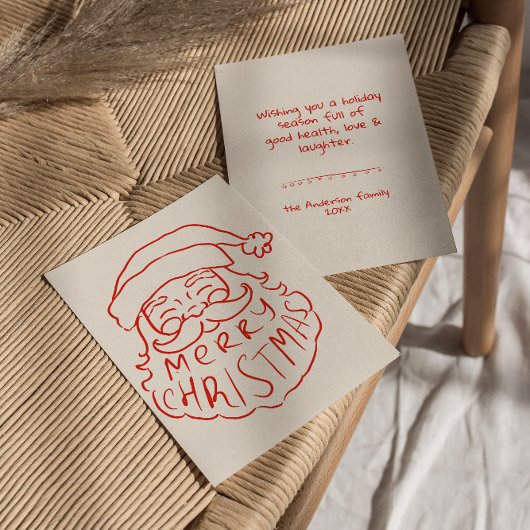 MERRY
CHRISTMAS
Wishing you a holiday
season full of
good health, love &
laughter.
the Anderson family
20XX